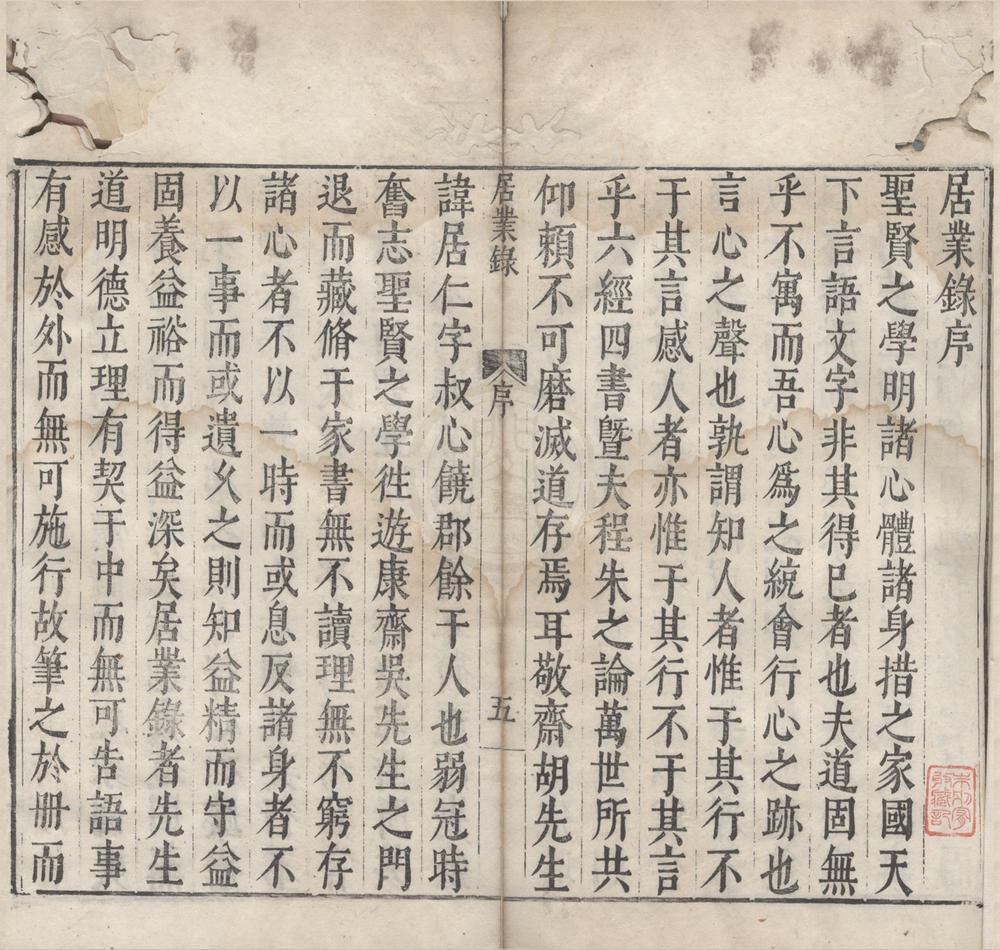 居業錄序
聖賢之學明諸心體諸身措之家國天
下言語文字非其得已者也夫道固無
乎不寓而吾心爲之統會行心之跡也
言心之聲也孰謂知人者惟于其行不
于其言感人者亦惟于其行不于其言
乎六經四書曁夫程朱之論萬世所共
仰賴不可磨滅道存焉耳敬齋胡先生
居業錄
序
五
諱居仁字叔心饒郡餘干人也弱冠時
奮志聖賢之學徃遊康齋吳先生之門
退而藏脩于家書無不讀理無不窮存
諸心者不以一時而或息反諸身者不
以一事而或遺乆之則知益精而守益
固養益裕而得益深矣居業錄者先生
道明德立理有契于中而無可告語事
有感於外而無可施行故筆之於册而